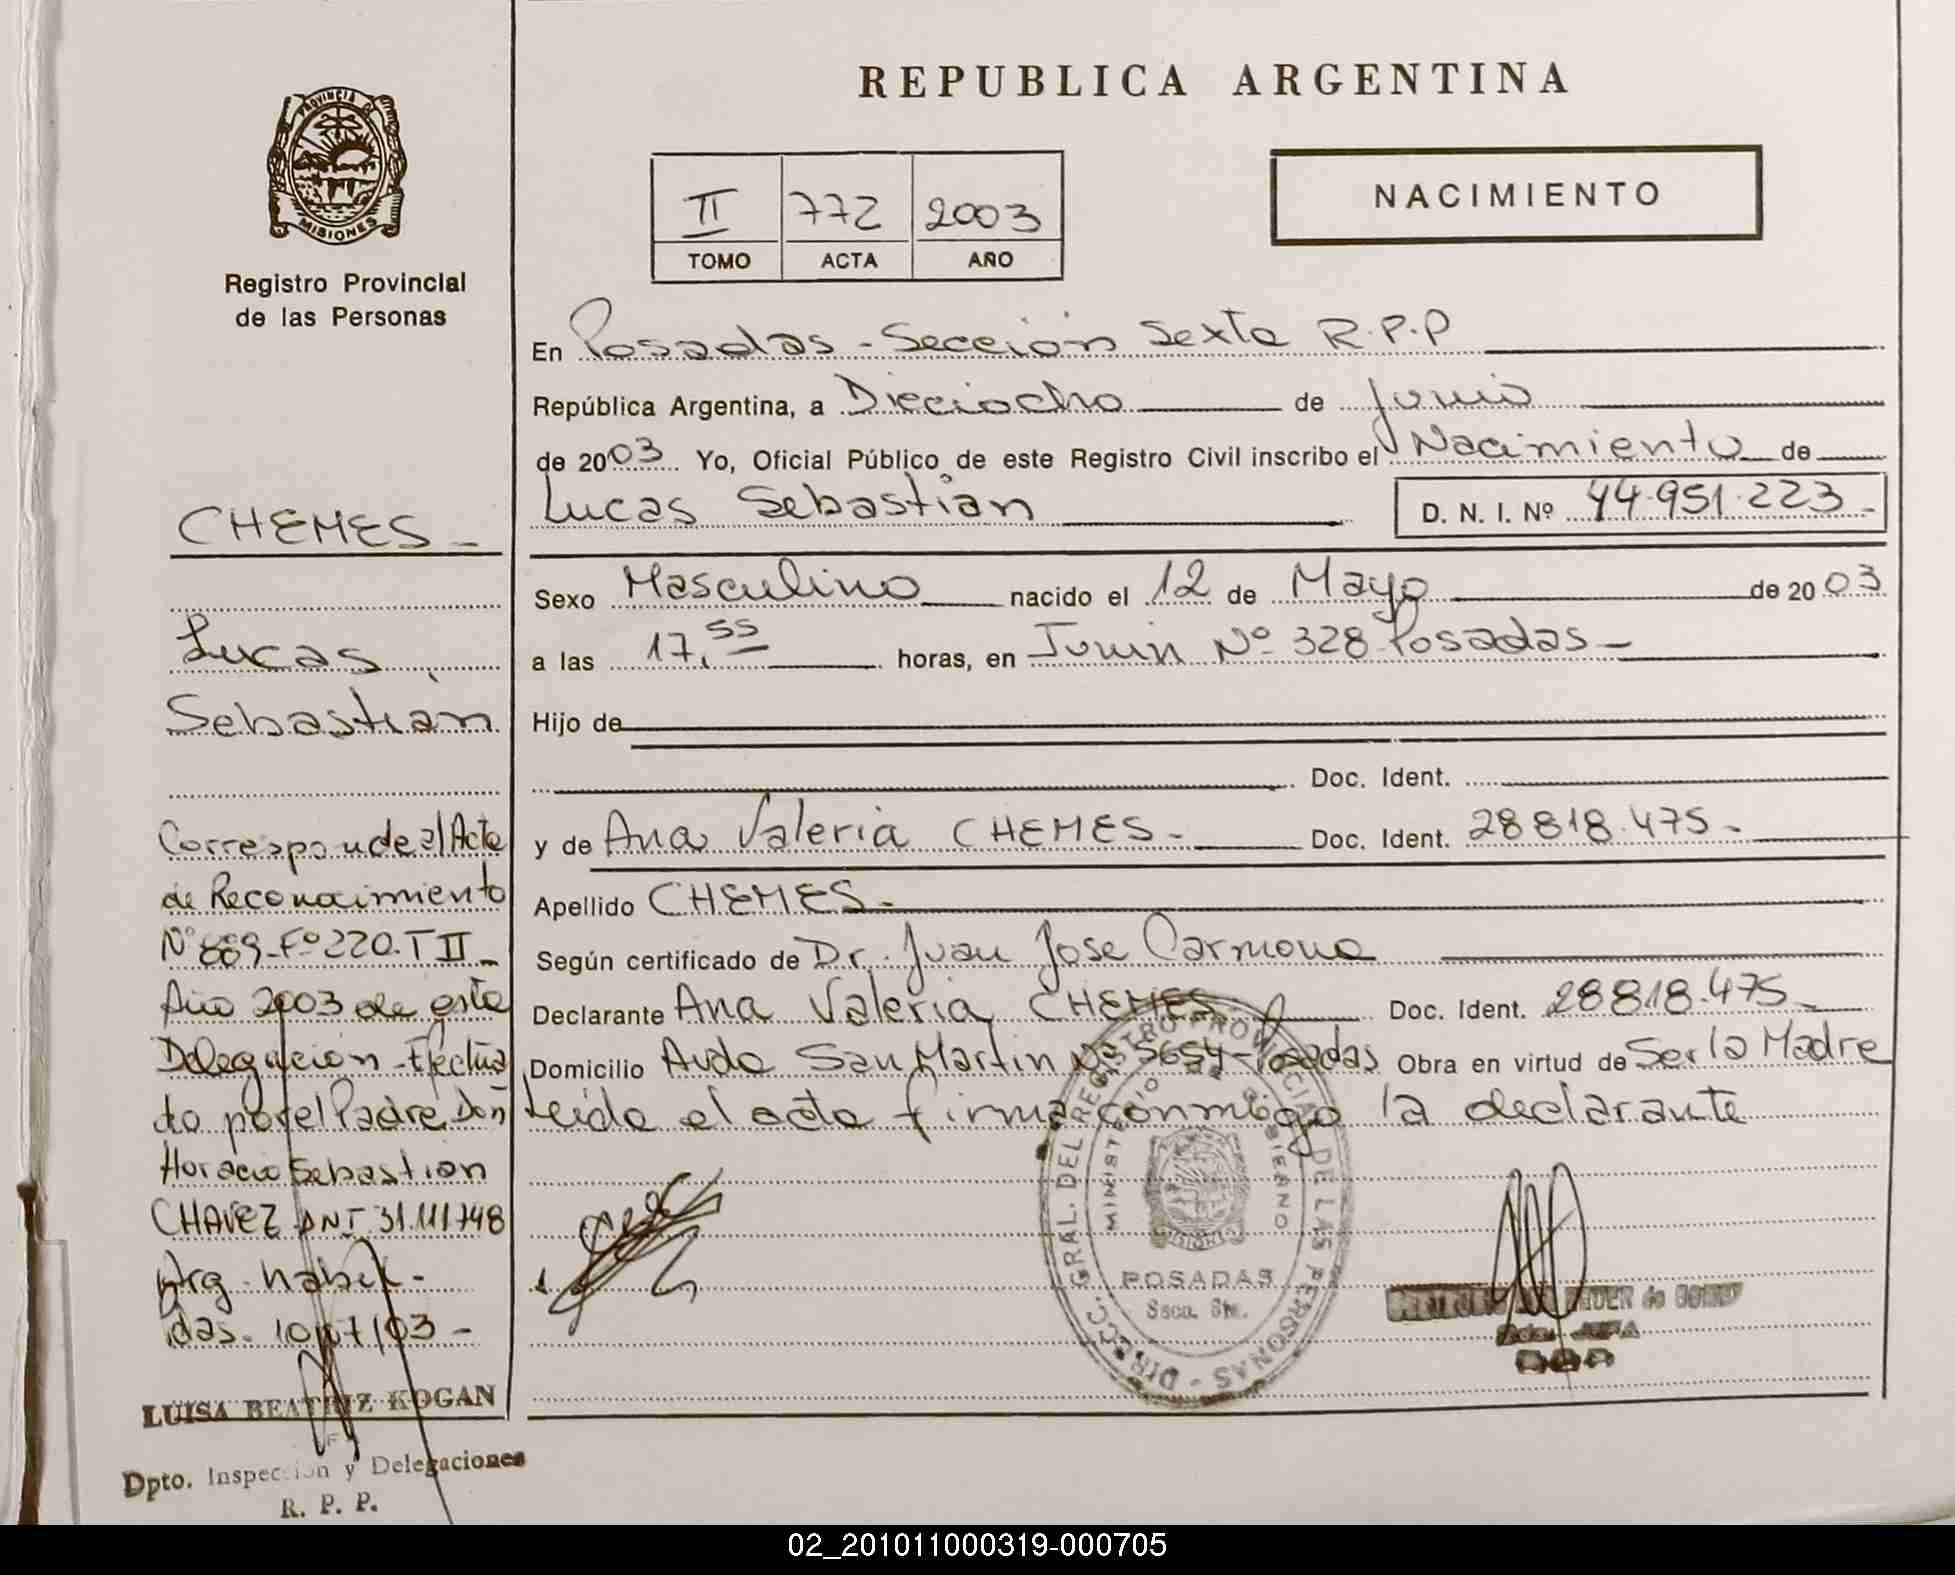 PROVINCIA DE
MISIONES
Registro Provincial
de las Personas
CHEMES -
Lucas
Sebastián
Corresponde al Acta
de Reconocimiento
Nº 889-Fº 220.T II -
Año 2003 de esta
Delegación-Efectua
do por el Padre Don
Horacio Sebastian
CHAVEZ DNI 31.111.748
Arg.
das. 10/07/03 -
LUISA BEATRIZ KOGAN
Dpto. Inspección y Delegaciones
R. P. P.
REPUBLICA ARGENTINA
II 772 2003
TOMO ACTA AÑO
NACIMIENTO
En Posadas - Sección Sexta R.P.P
República Argentina, a Dieciocho de Junio
de 2003 Yo, Oficial Público de este Registro Civil inscribo el Nacimiento de
Lucas Sebastián D. N. I. Nº 44.951.223 -
Sexo Masculino nacido el 12 de Mayo de 2003
a las 17,55 horas, en Junin Nº 328 Posadas -
Hijo de
Doc. Ident.
y de Ana Valeria CHEMES - Doc. Ident. 28818.475 -
Apellido CHEMES -
Según certificado de Dr. Juan Jose Carmona
Declarante Ana Valeria CHEMES Doc. Ident. 28818.475 -
Domicilio Avda San Martin Nº 5654 - Posadas Obra en virtud de Ser la Madre
Leida el acta firma conmigo la declarante
DIRECC. GRAL. DEL REGISTRO PROVINCIAL DE LAS PERSONAS -
MINISTERIO DE GOBIERNO
MISIONES
POSADAS
Secc. 6ta.
02_201011000319-000705